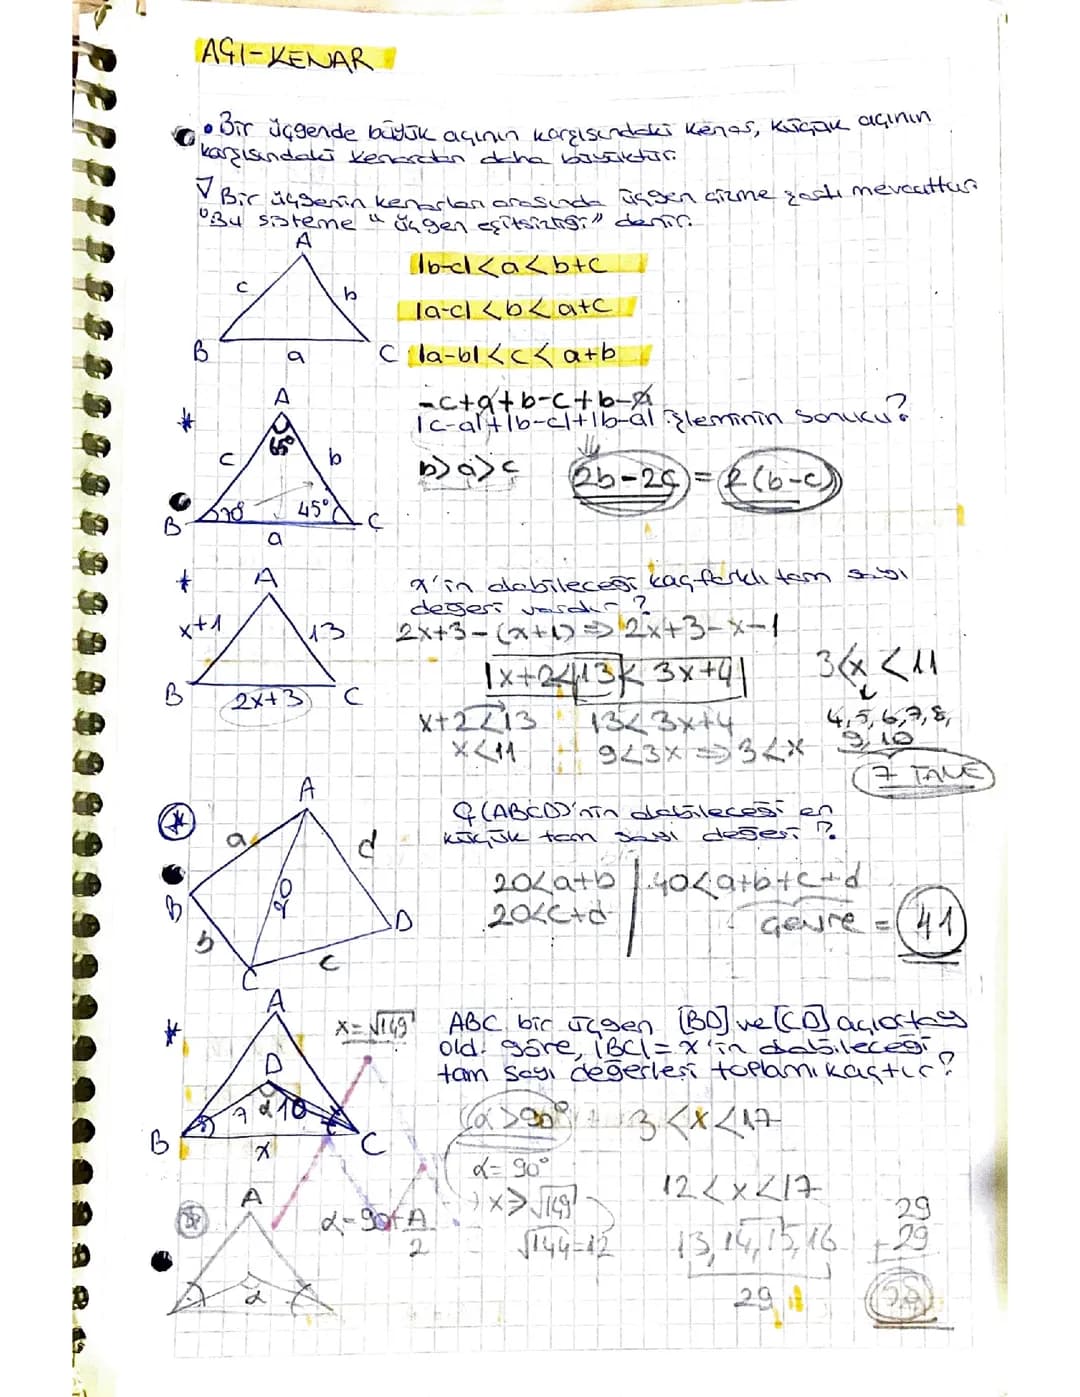 AÇI-KENAR
• Bir üçgende büyük açının karşısındaki kenar, küçük açının
karşısındaki kenardan daha büyüktür.
∇ Bir üçgenin kenarları arasında üçgen çizme şartı mevcuttur.
Bu sisteme "üçgen eşitsizliği" denir.
A
c
b
B
a
C
|b-c|<a<b+c
|a-c|<b<a+c
|a-b|<c<a+b
* A
65°
c
b
70°
45°
B
C
a
-c+a+b-c+b-a
|c-a|+|b-c|+|b-a| işleminin sonucu?
b>a>c
2b-2c = 2(b-c)
* A
x+1
13
B
2x+3
C
x'in alabileceği kaç farklı tam sayı
değeri vardır?
2x+3-(x+1) ⇒ 2x+3-x-1
|x+2<13< 3x+4|
3<x<11
x+2<13
13<3x+4
4,5,6,7,8,
x<11
9<3x ⇒ 3<x
9,10
7 TANE
* A
a
d
B
b
D
c
C
Ç(ABCD)'nin alabileceği en
küçük tam sayı değeri?
20<a+b
40<a+b+c+d
20<c+d
Çevre = 41
* A
x=√149
D
7
α
10
B
x
C
ABC bir üçgen [BD] ve [CD] açıortay
old. göre, |BC|= x'in alabileceği
tam sayı değerleri toplamı kaçtır?
α>90°
3<x<17
α=90°
x>√149
12<x<17
α=90+A/2
√144=12
13,14,15,16
29
29
+29
58
A
α